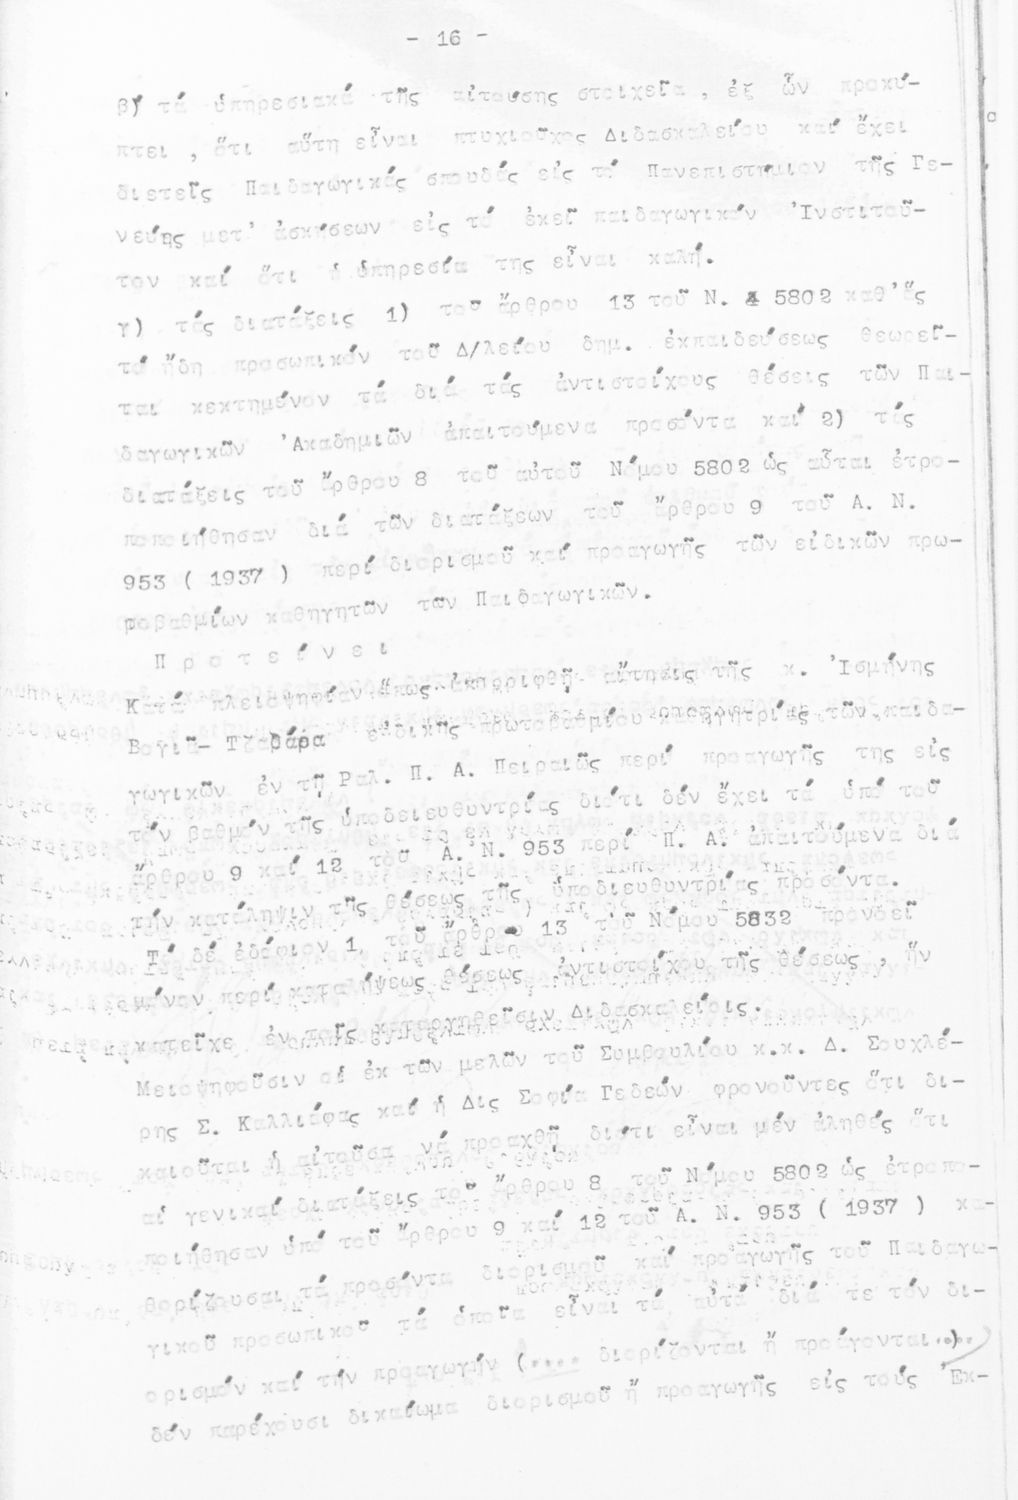 - 16 -
β) τά ὑπηρεσιακά τῆς αἰτούσης στοιχεῖα , ἐξ ὧν προκύ-
πτει , ὅτι αὕτη εἶναι πτυχιοῦχος Διδασκαλείου καί ἔχει
διετεῖς Παιδαγωγικάς σπουδάς εἰς τό Πανεπιστήμιον τῆς Γε-
νεύης μετ' ἀσκήσεων εἰς τό ἐκεῖ παιδαγωγικόν 'Ινστιτοῦ-
τον καί ὅτι ἡ ὑπηρεσία της εἶναι καλή.
γ) τάς διατάξεις 1) τοῦ ἄρθρου 13 τοῦ Ν. 5802 καθ'ἅς
τό ἤδη προσωπικόν τοῦ Δ/λείου δημ. ἐκπαιδεύσεως θεωρεῖ-
ται κεκτημένον τά διά τάς ἀντιστοίχους θέσεις τῶν Παι-
δαγωγικῶν 'Ακαδημιῶν ἀπαιτούμενα προσόντα καί 2) τάς
διατάξεις τοῦ ἄρθρου 8 τοῦ αὐτοῦ Νόμου 5802 ὡς αὗται ἐτρο-
ποποιήθησαν διά τῶν διατάξεων τοῦ ἄρθρου 9 τοῦ Α. Ν.
953 ( 1937 ) περί διορισμοῦ καί προαγωγῆς τῶν εἰδικῶν πρω-
τοβαθμίων καθηγητῶν τῶν Παιδαγωγικῶν.
Π ρ ο τ ε ί ν ε ι
Κατά πλειοψηφίαν ὅπως ἀπορριφθῇ αἴτησις τῆς κ. 'Ισμήνης
Βογιᾶ- Τζαβάρα εἰδικῆς πρωτοβαθμίου καθηγητρίας τῶν παιδα-
γωγικῶν ἐν τῇ Ραλ. Π. Α. Πειραιῶς περί προαγωγῆς της εἰς
τόν βαθμόν τῆς ὑποδιευθυντρίας διότι δέν ἔχει τά ὑπό τοῦ
ἄρθρου 9 καί 12 τοῦ Α. Ν. 953 περί Π. Α. ἀπαιτούμενα διά
τήν κατάληψιν τῆς θέσεως τῆς ὑποδιευθυντρίας προσόντα.
Τό δέ ἐδάφιον 1, τοῦ ἄρθρου 13 τοῦ Νόμου 5832 προνοεῖ
μόνον περί καταλήψεως θέσεως ἀντιστοίχου τῆς θέσεως , ἥν
κατεῖχε ἐν ταῖς καταργηθεῖσιν Διδασκαλείοις.
Μειοψηφοῦσιν οἱ ἐκ τῶν μελῶν τοῦ Συμβουλίου κ.κ. Δ. Σουχλέ-
ρης Σ. Καλλιάφας καί ἡ Δις Σοφία Γεδεών φρονοῦντες ὅτι δι-
καιοῦται ἡ αἰτοῦσα νά προαχθῇ διότι εἶναι μέν ἀληθές ὅτι
αἱ γενικαί διατάξεις τοῦ ἄρθρου 8 τοῦ Νόμου 5802 ὡς ἐτροπο-
ποιήθησαν ὑπό τοῦ ἄρθρου 9 καί 12 τοῦ Α. Ν. 953 ( 1937 ) κα-
θορίζουσαι τά προσόντα διορισμοῦ καί προαγωγῆς τοῦ Παιδαγω-
γικοῦ προσωπικοῦ τά ὁποῖα εἶναι τά αὐτά διά τε τόν δι-
ορισμόν καί τήν προαγωγήν (.... διορίζονται ἤ προάγονται....)
δέν παρέχουσι δικαίωμα διορισμοῦ ἤ προαγωγῆς εἰς τούς 'Εκ-